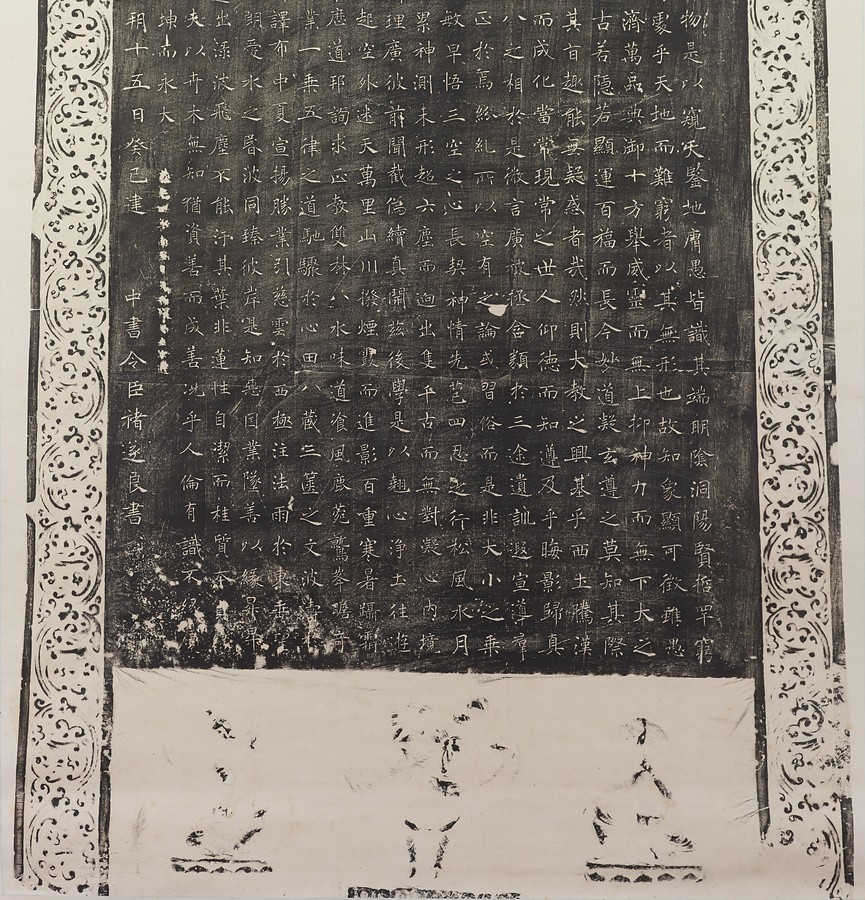 物是以窺天鑒地庸愚皆識其端明陰洞陽賢哲罕窮
處乎天地而難窮者以其無形也故知象顯可徵雖愚
濟萬品典御十方舉威靈而無上抑神力而無下大之
古若隱若顯運百福而長今妙道凝玄遵之莫知其際
其旨趣能無疑惑者哉然則大教之興基乎西土騰漢
而成化當常現常之世人仰德而知遵及乎晦影歸真
八之相於是微言廣被拯含類於三途遺訓遐宣導羣
正於焉紛糺所以空有之論或習俗而是非大小之乘
敏早悟三空之心長契神情先苞四忍之行松風水月
累神測未形超六塵而迥出隻千古而無對凝心內境
理廣彼前聞截偽續真開茲後學是以翹心淨土往遊
起空外迷天萬里山川撥煙霞而進影百重寒暑躡霜
歷道邦詢求正教雙林八水味道飡風鹿菀鷲峯瞻奇
業一乘五律之道馳驟於心田八藏三篋之文波濤
譯布中夏宣揚勝業引慈雲於西極注法雨於東垂
朗愛水之昬波同臻彼岸是知惡因業墜善以緣昇
出淥波飛塵不能汙其葉非蓮性自潔而桂質本
夫以卉木無知猶資善而成善況乎人倫有識不緣
坤而永大
朔十五日癸巳建 中書令臣褚遂良書